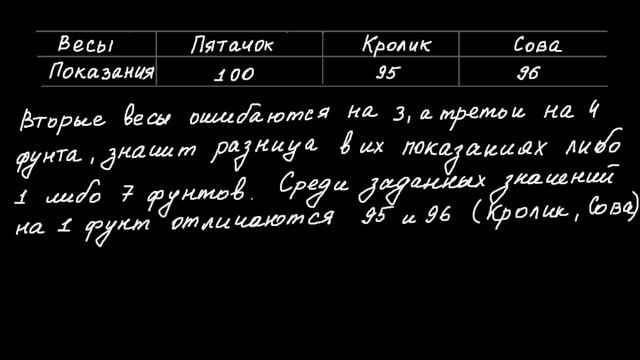 Весы Пятачок Кролик Сова
Показания 100 95 96
Вторые весы ошибаются на 3, а третьи на 4
фунта, значит разница в их показаниях либо
1 либо 7 фунтов. Среди заданных значений
на 1 фунт отличаются 95 и 96 (Кролик, Сова)